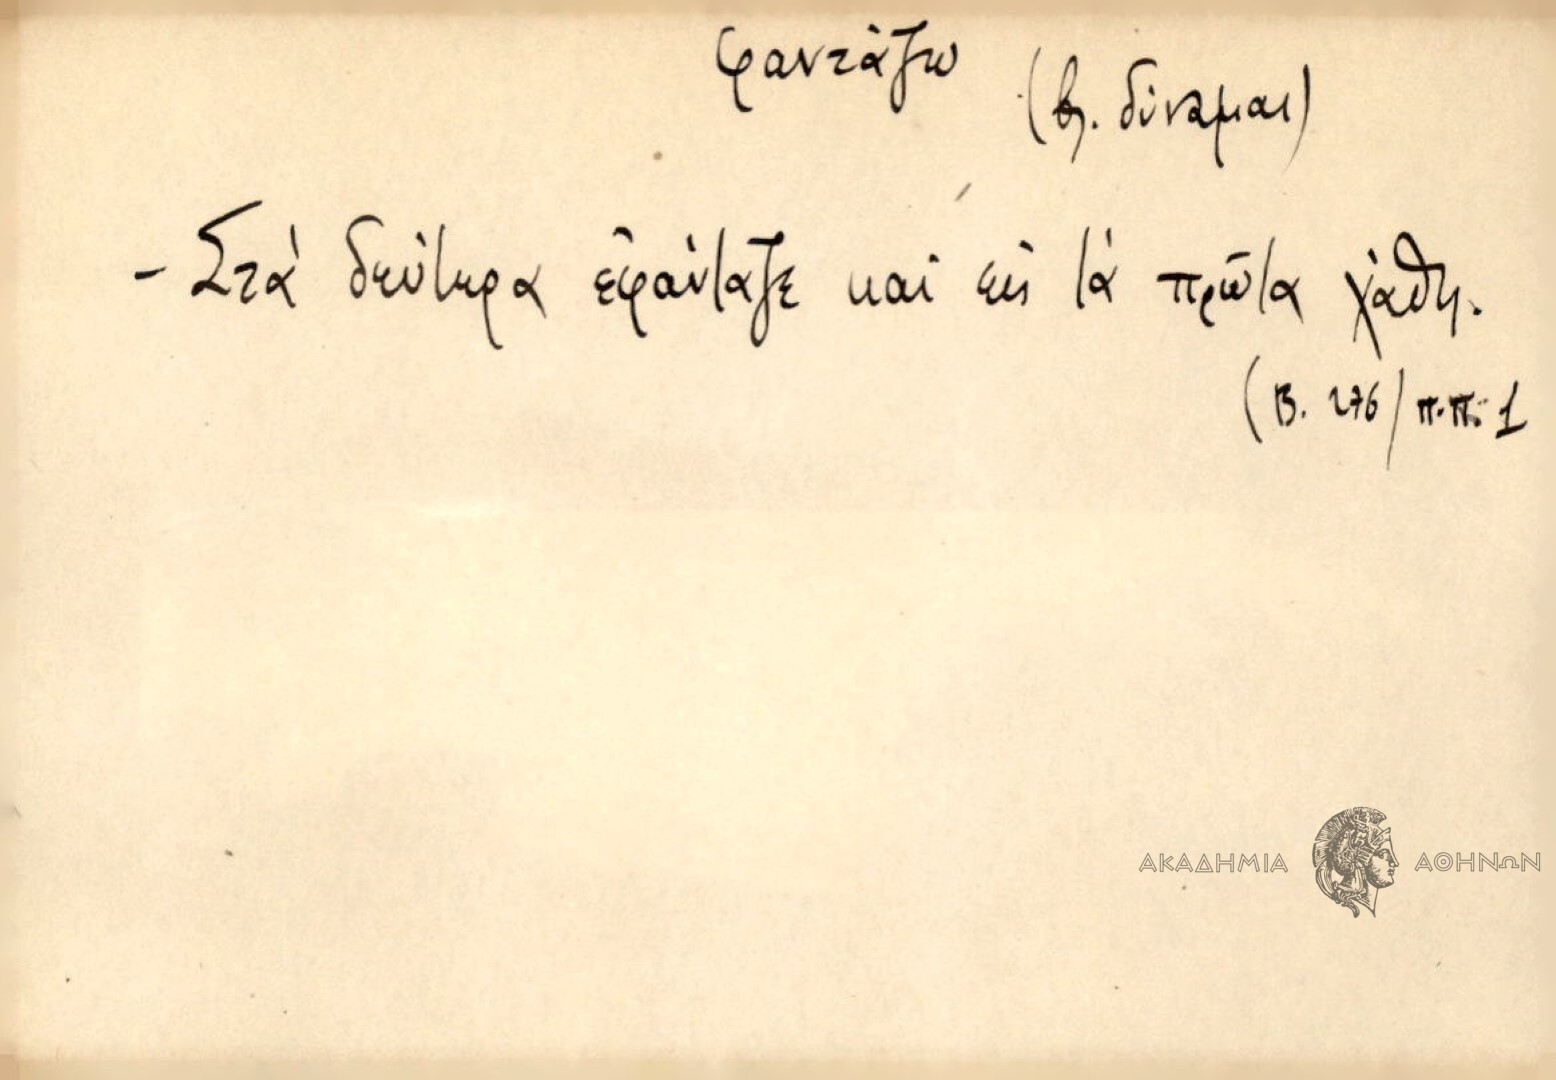 φαντάζω
(βλ. δύναμαι)
- Στά δεύτερα ἐφάνταζε καί εἰς τά πρῶτα χάθη.
(Β. 276/π.π. 1
ΑΚΑΔΗΜΙΑ ΑΘΗΝΩΝ